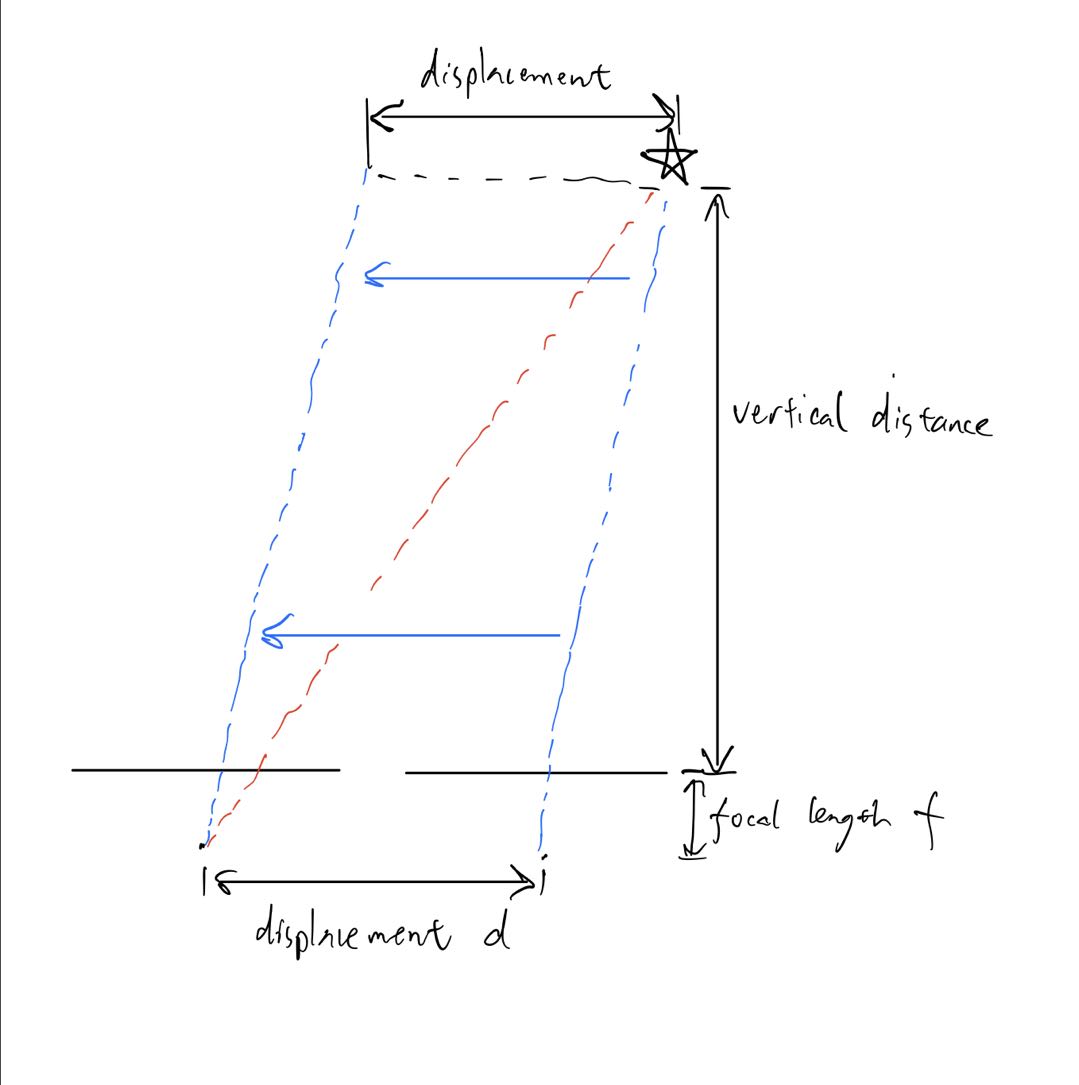 displacement
vertical distance
focal length f
displacement d